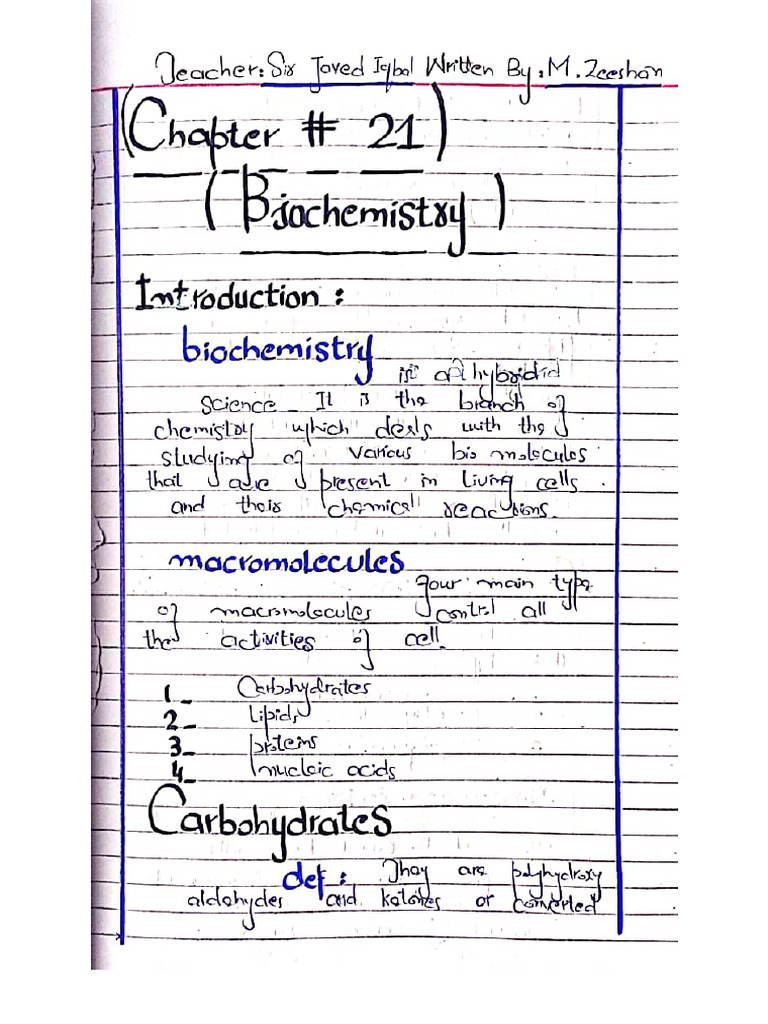 Teacher: Sir Javed Iqbal Written By: M. Zeeshan
(Chapter # 21)
(Biochemistry)
Introduction:
biochemistry
is a hybrid
science_ It is the branch of
chemistry which deals with the
studying of various bio molecules
that are present in living cells.
and their chemical reactions.
macromolecules
four main type
of macromolecules control all
the activities of cell.
1_ Carbohydrates
2_ lipids
3_ proteins
4_ nucleic acids
Carbohydrates
def: They are polyhydroxy
aldehydes and ketones or converted